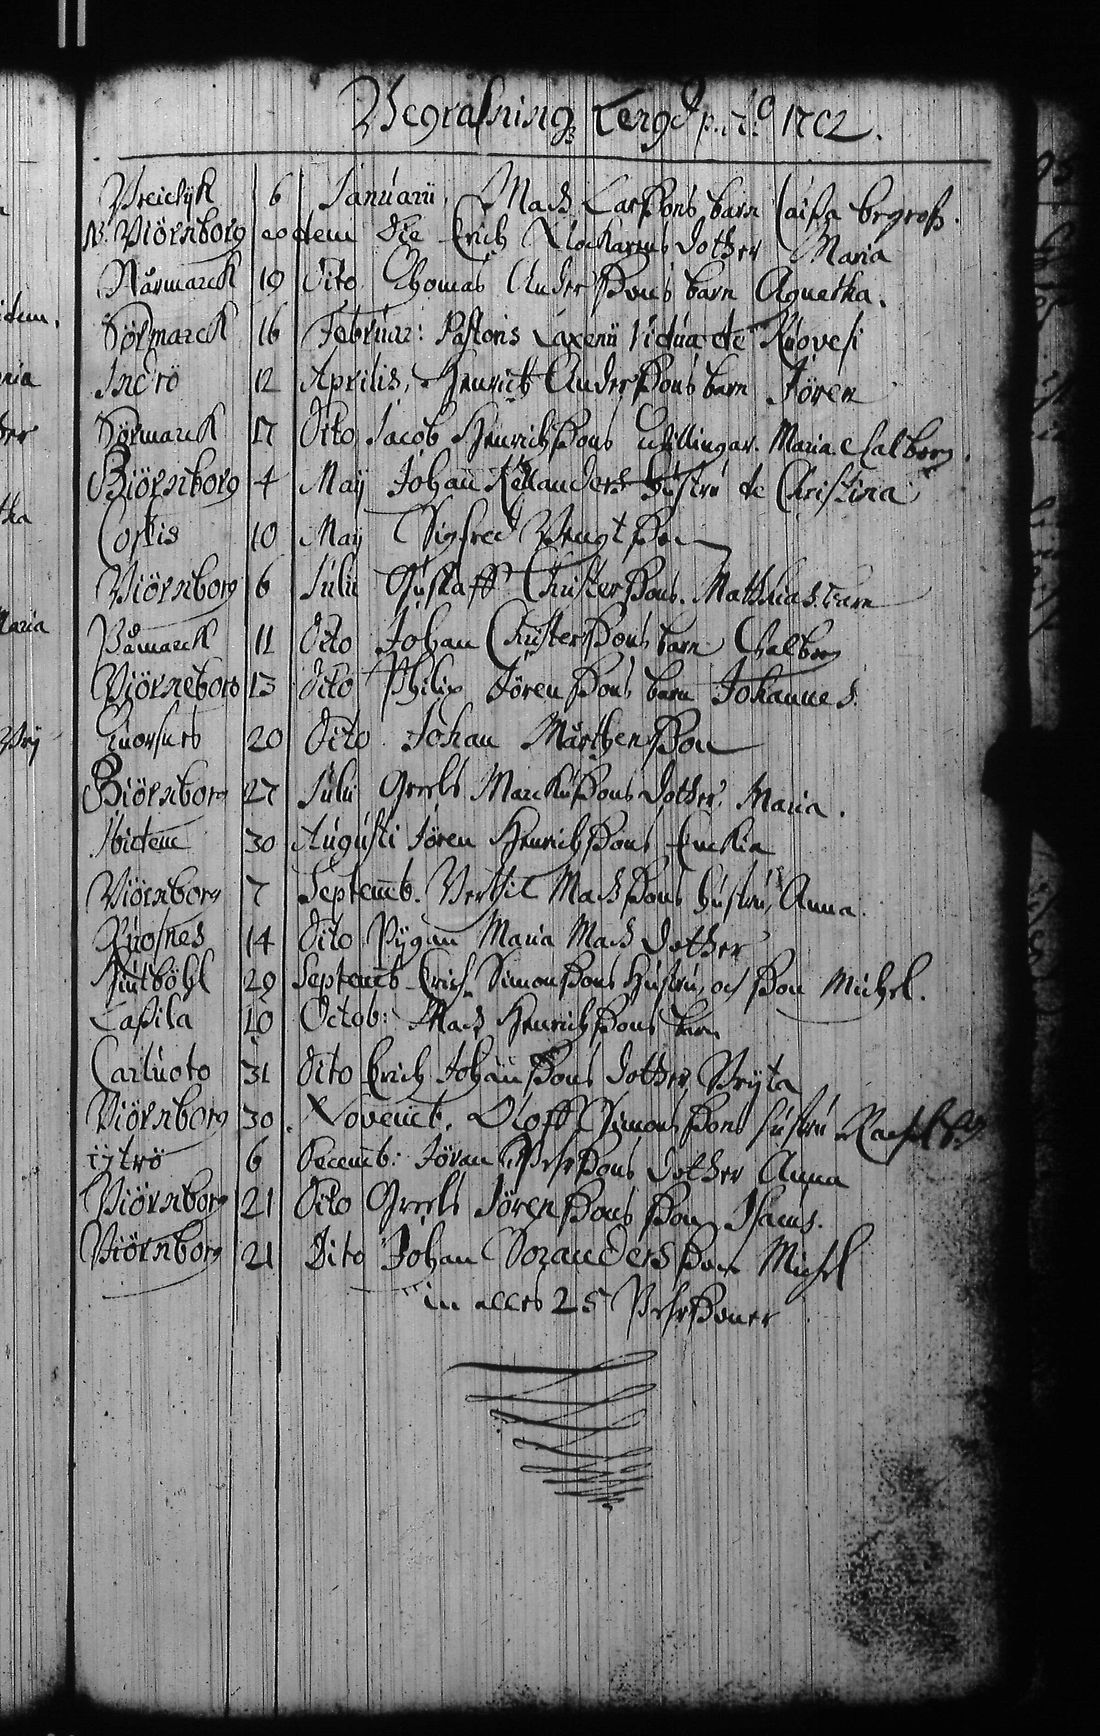 Begrafning Lengd p. Ao 1702.
Preiviijk 6 Januarii, Mads LarßÖns barn Caisa begrofs.
N. Biörnborg eodem die Erich Klockarens dother Maria
Nårmarck 19 Dito Thomas AnderßÖns barn Agnetha.
Sörmarck 16 Februar: Pastoris Laxenii Vidua de Kuovesi
Inderö 12 Aprilis, Henrich AnderßÖns barn Jören
Sörmarck 17 Dito Jacob HenrichßÖns tvillingar. Maria Walborg.
Biörnborg 4 May Johan Kellanders hustru de Christina
Coskis 10 May Sigfred BengtßÖn
Biörnborg 6 Julii Gustaff ChristerßÖns. Matthias barn
Påmarck 11 Dito Johan ChristerßÖns barn Walborg
Biörneborg 13 Dito Philip JörenßÖns barn Johannes.
20 Dito Johan MårthenßÖn
Biörnborg 27 Julii Greels MarckusßÖns dother Maria.
Ibidem 30 Augusti Jören HenrichßÖns Enckia
Biörnborg 7 Septemb. Bertil MadsßÖns hustru, Anna.
14 Dito Pygan Maria Mads dother
29 Septemb Erich SimonßÖns hustru, och ßÖn Michel.
Laßila 10 Octob: Mads HenrichßÖns barn
Carluoto 31 Dito Erich JohanßÖns dother Bryta
Biörnborg 30. Novemb. Oloff SimonsßÖns hustru
ijttrö 6 Decemb: Jöran PehrßÖns dother Anna
Biörnborg 21 Dito Greels JörenßÖns ßÖn Isacus.
Biörnborg 21 Dito Johan ßÖn Michel
in alles 25 PehrßÖner